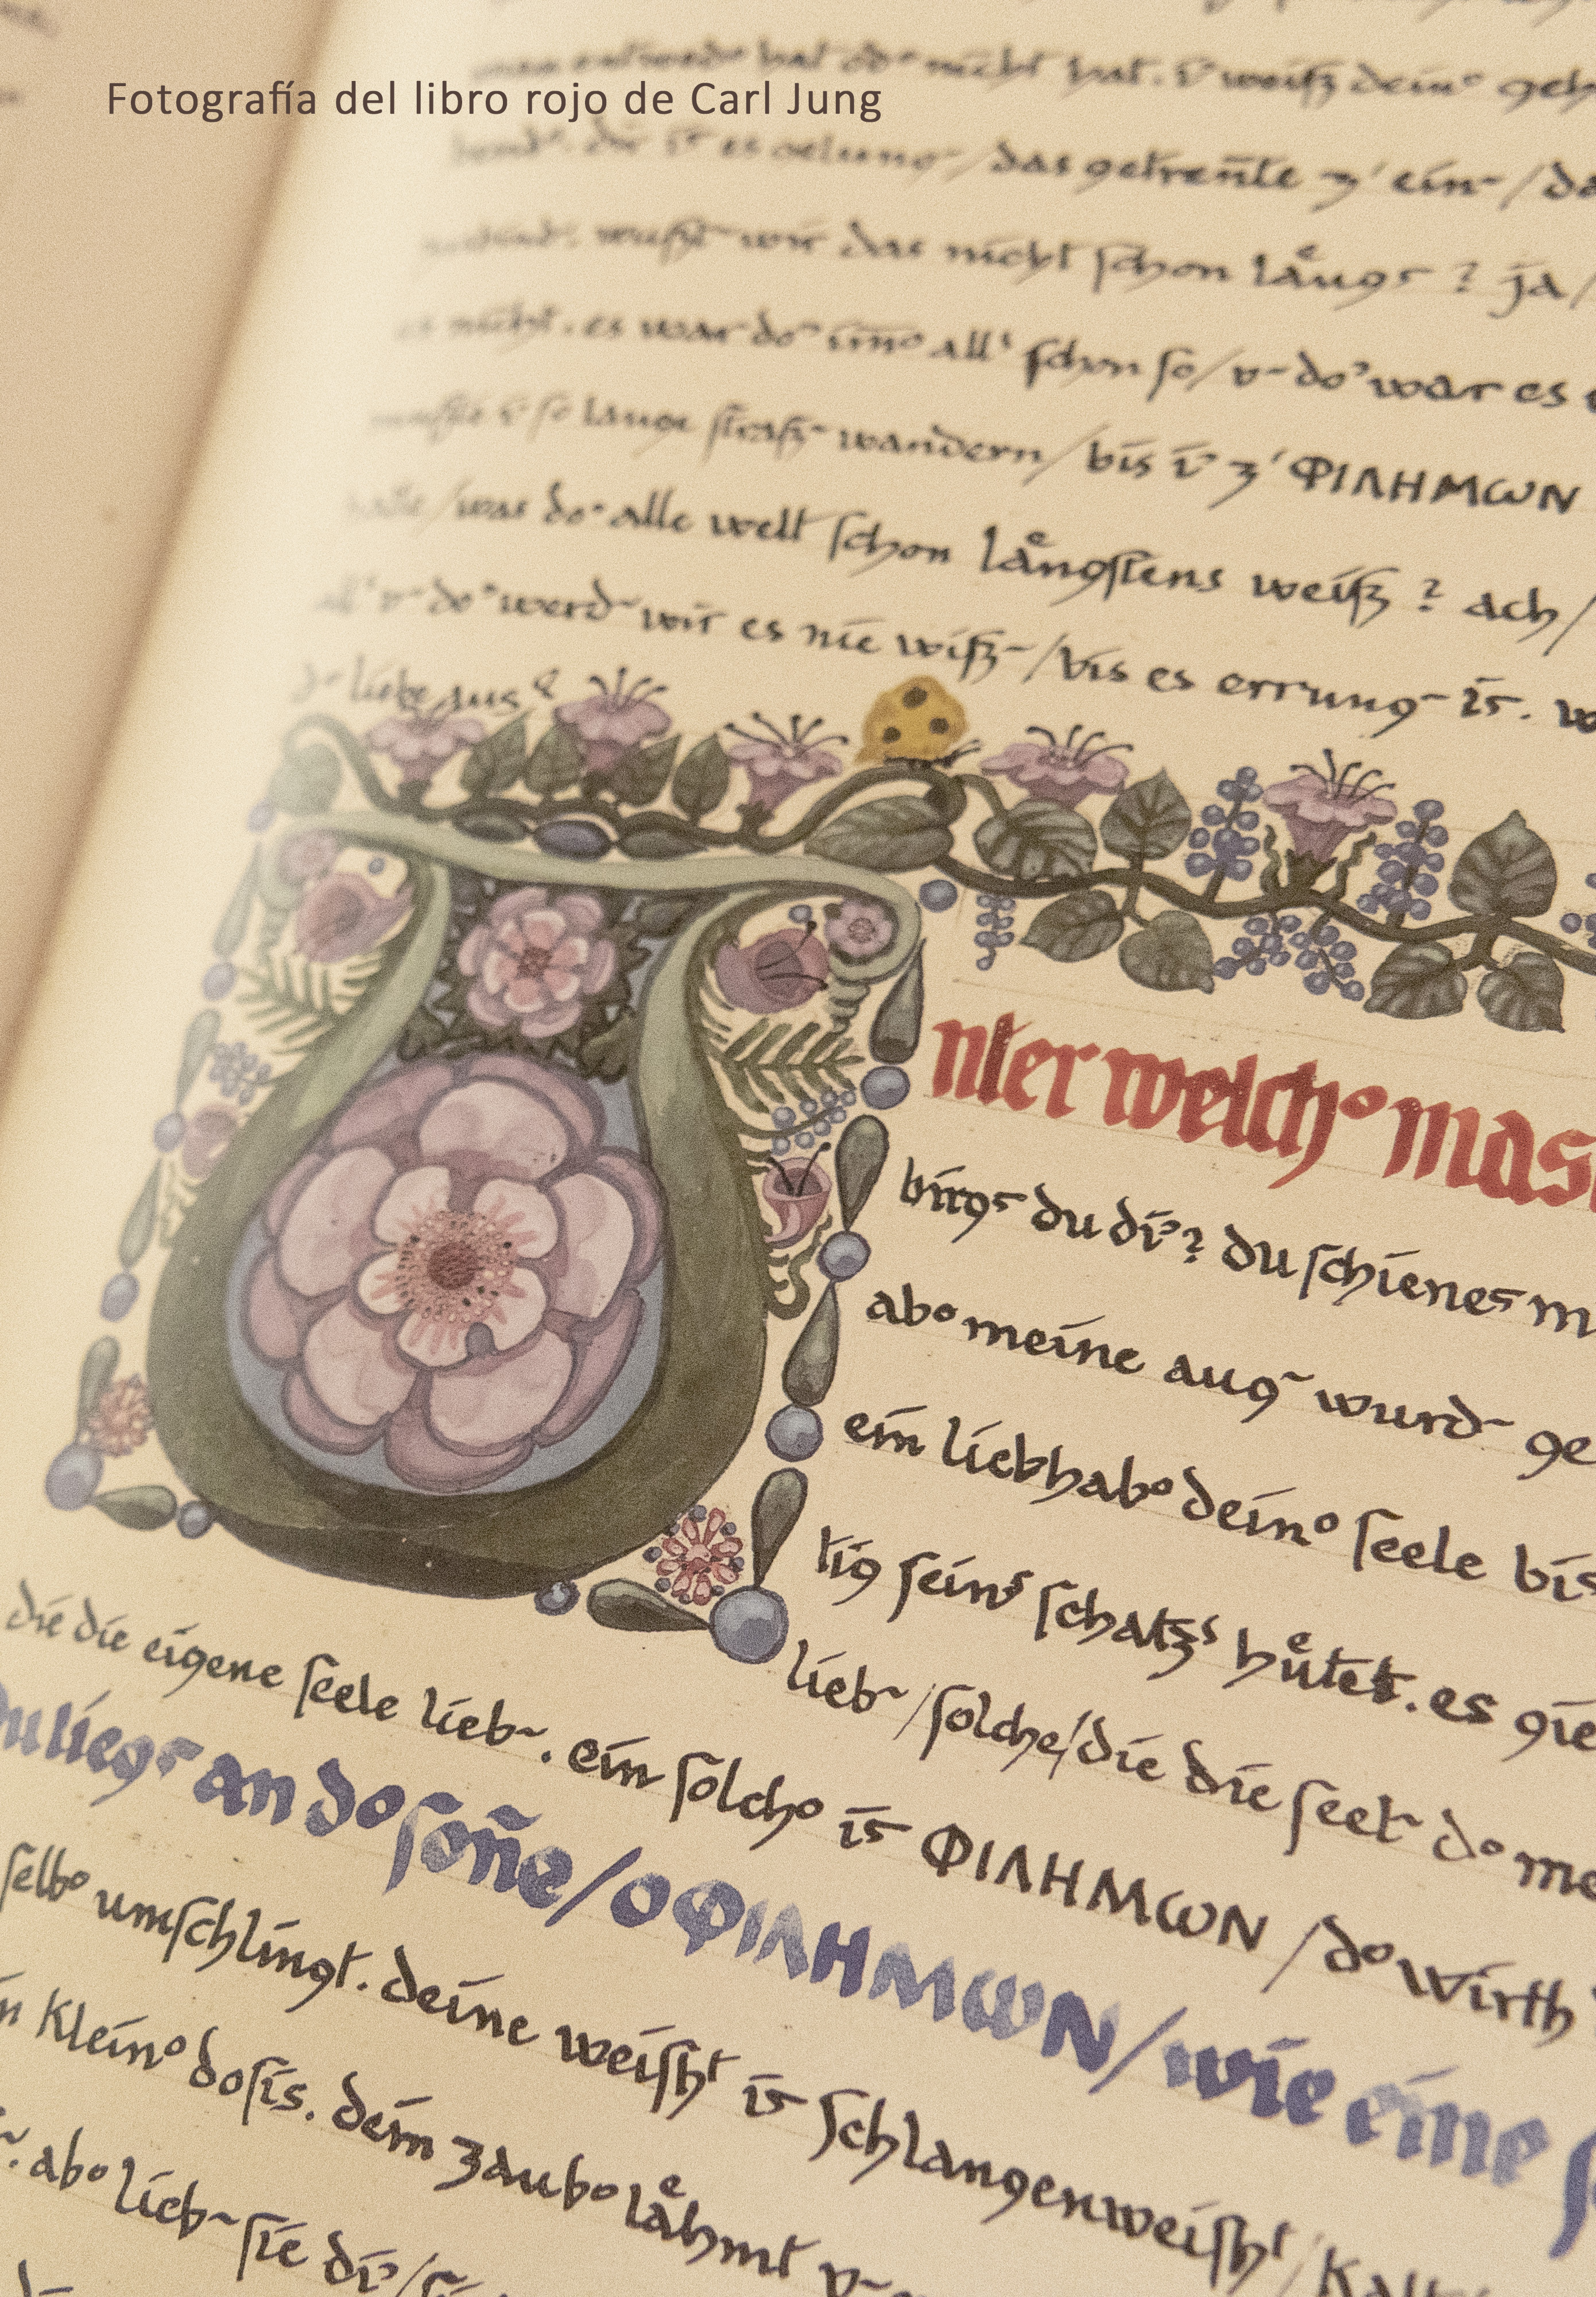 Fotografía del libro rojo de Carl Jung
hat od° nicht hat. i' weiß dein° geh
es gelung~ / das getren̄te z' ein~ / da
wußt~ wir das nicht ſchon laͤngs ? ja /
nicht. es war do' im̄° all' ſchon ſo / v~ do' war es
ſo lange ſtraß~ wandern / bis i' z' ΦΙΛΗΜΩΝ
/ was do' alle welt ſchon laͤngſtens weiß ? ach /
v~ do' werd~ wir es nie wiß~ / bis es errung~ is.
liebe aus
nter welch° mas
birgs du di' ? du ſchienes m
ab° meine aug~ wurd~ ge
ein liebhab° dein° ſeele bis
tig ſein' ſchatz' huͤtet. es gie
lieb~ / ſolche / die die ſeel~ d° me
die die eigene ſeele lieb~. ein ſolch° is ΦΙΛΗΜΩΝ / d° wirth
du liegs an d° ſon̄e / o ΦΙΛΗΜΩΝ / wie eine ſ
ſelb° umſchlingt. deine weiſht is ſchlangenweiſht / kalt
n klein° doſis. dein zaub° laͤhmt v~
ab° lieb~ ſie di' /